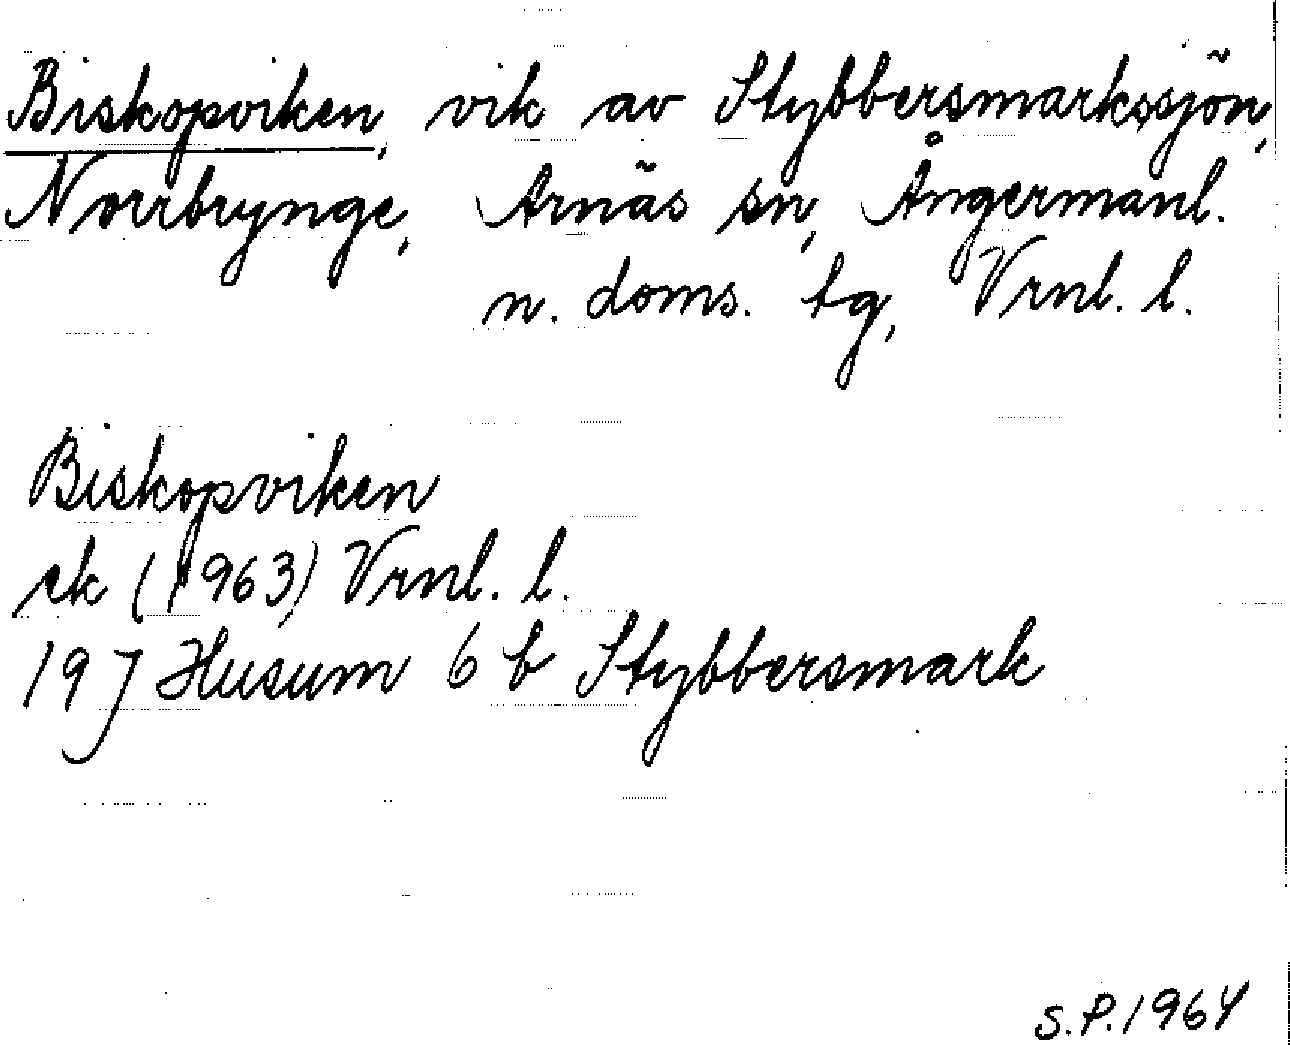 Biskopviken, vik av Stybbersmarkssjön,
Norrbrynge, Arnäs sn, Ångermanl.
n. doms. tg, Vrnl. l.
Biskopviken
ek (1963) Vrnl. l.
19 J Husum 6 b Stybbersmark
S.P. 1964